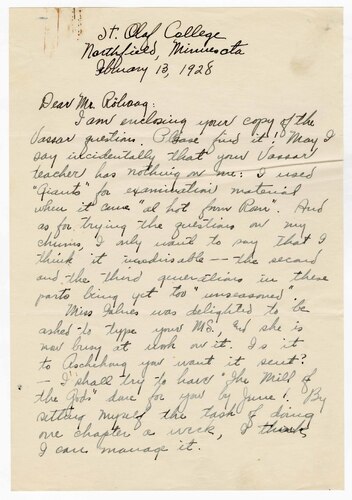 St. Olaf College
Northfield, Minnesota
February 13, 1928
Dear Mr. Rölvaag:
I am enclosing your copy of the
Vassar questions. Please find it! May I
say incidentally that your Vassar
teacher has nothing on me: I used
"Giants" for examination material
when it came "al hot from Ram". And
as for trying the questions on my
chums, I only want to say that I
think it inadvisable -- the second
and the third generations in these
parts being yet too "unseasoned"
Miss was delighted to be
asked to type your MS. and she is
now busy at work on it. Is it
to Aschehoug you want it sent?
-- I shall try to have "The Mill of
the Gods" done for you by June! By
setting myself the task of doing
one chapter a week, I think
I can manage it.